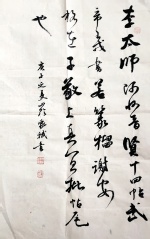 李太師收晉賢十四帖武
帝戎書若篆籀謝安
格在子敬上真宜批帖尾
也
庚子 夏 書